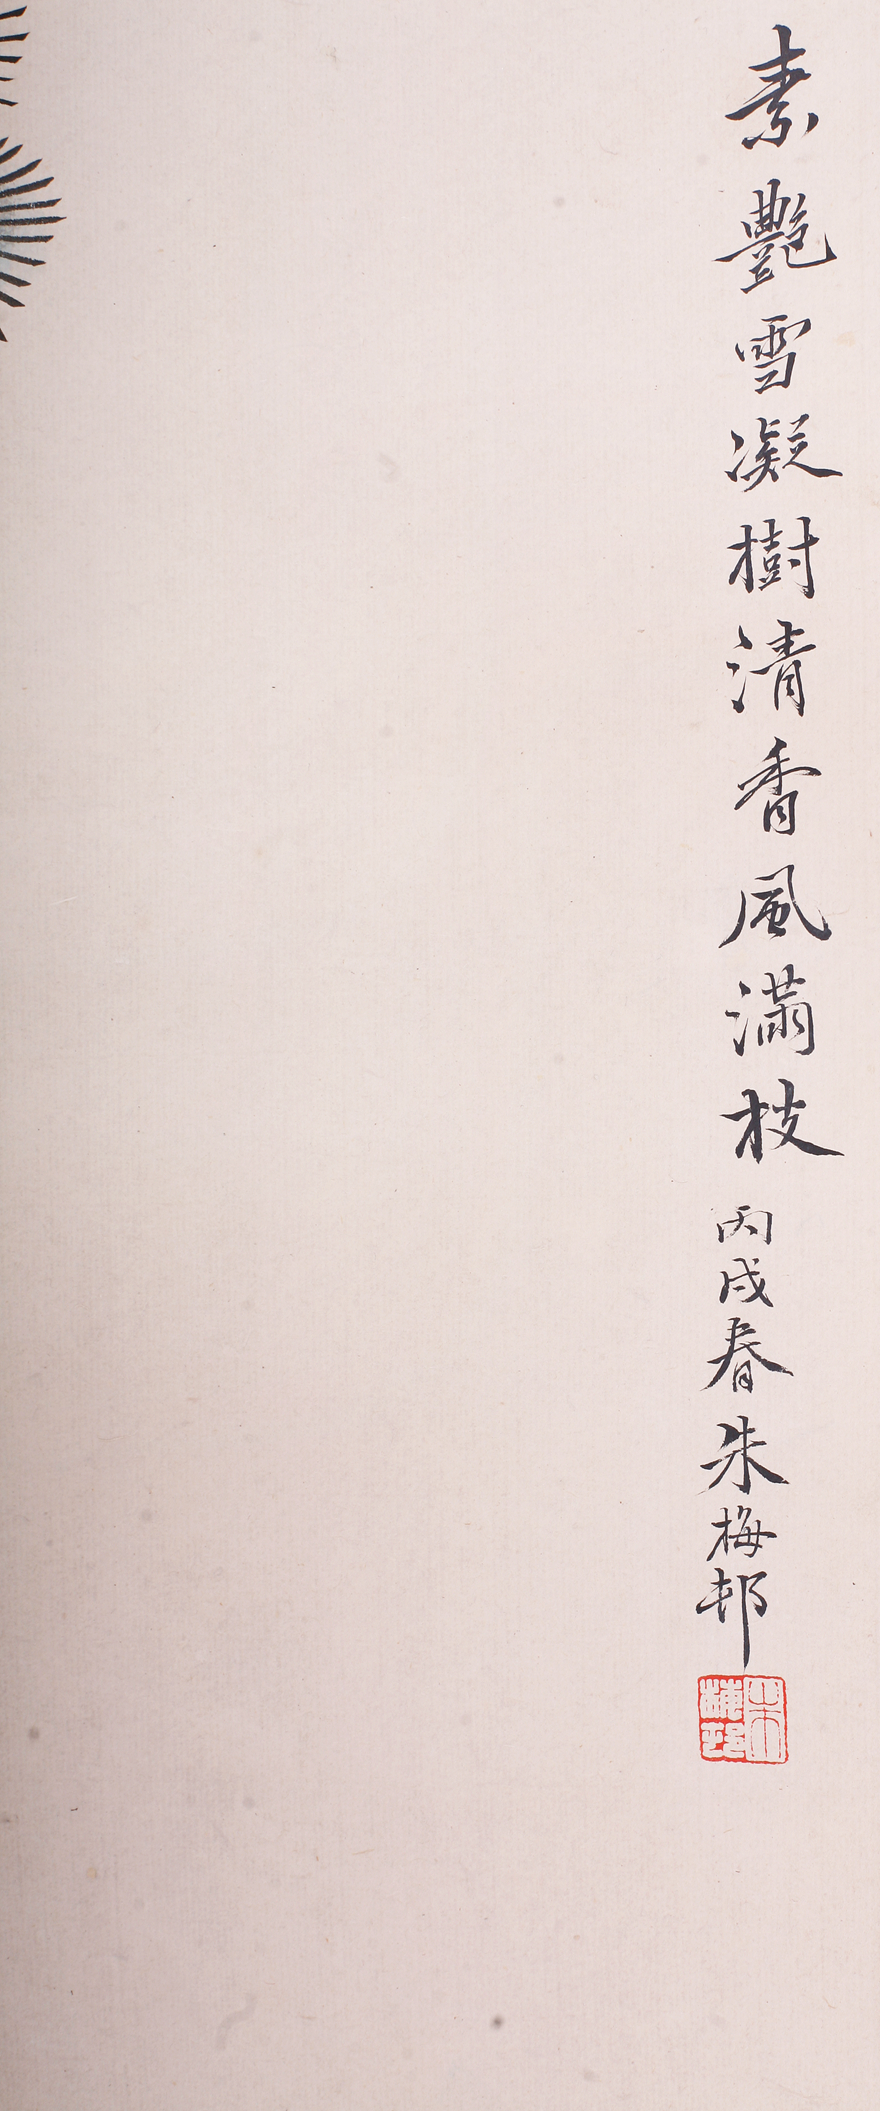 素艷雪凝樹清香風滿枝
丙戌春朱梅邨
朱梅邨